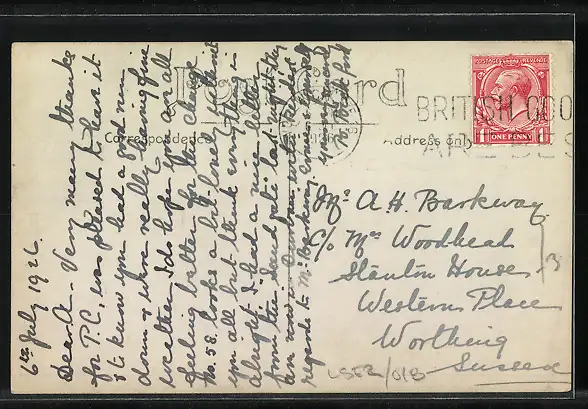 Post Card
Correspondence
Address only
POSTAGE REVENUE
ONE PENNY
BRITISH GOO
ARE BES
6th July 1926
Dear A- Very many thanks
for P.C, was pleased to have it
& to know you had a good run
down & were really having fine
weather I do hope you are all
feeling better for the change
No. 58 looks a bit lonely without
you all but think everything is
alright. I had a nice letter
from the
am now
regards to Mr Barkway,
yours sincerely
Mr A. H. Barkway.
c/o Mrs Woodhead
Stanton House
Western Place
Worthing
Sussex